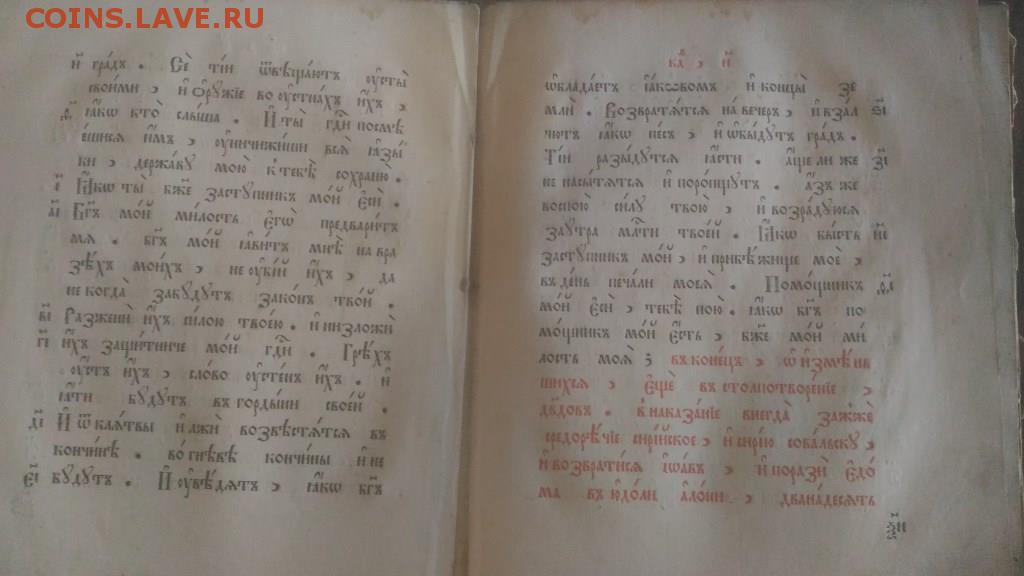 COINS.LAVE.RU
и҆ гра́дъ . Сѐ ті́и ѿвѣща́ютъ ᲂу҆сты̀
свои́ми , и҆ ѻ҆рꙋ́жїе во ᲂу҆стна́хъ и҆́хъ ,
и҃ ꙗ҆́кѡ кто̀ слы́ша . И҆ ты̀ гдⷭ҇и посмѣ
е́шися и҆̀мъ , ᲂу҆ничижи́ши всѧ̀ ꙗ҆зы́
ки , держа́вꙋ мою̀ к тебѣ̀ сохраню̀ .
і҃ ꙗ҆́кѡ ты̀ бж҃е застꙋ́пник мо́й є҆сѝ .
а҃і Бг҃ъ мо́й ми́лость є҆гѡ̀ предвари́тъ
мѧ . бг҃ъ мо́й ꙗ҆ви́тъ мнѣ̀ на вра
зѣ́хъ мои́хъ , не ᲂу҆бі́й и҆́хъ , да
не когда̀ забꙋ́дꙋтъ зако́нъ тво́й .
в҃і Разженѝ и҆́хъ си́лою твое́ю . и҆ низложѝ
г҃і и҆́хъ защи́тниче мо́й гдⷭ҇и . Грѣ́хъ
ᲂу҆́стъ и҆́хъ , сло́во ᲂу҆сте́нъ и҆́хъ . и҆
ꙗ҆́ти бꙋ́дꙋтъ в горды́ни свое́й .
д҃і И҆ ѿ клѧ́твы и҆ лжѝ возвѣстѧ́тсѧ въ
кончи́нѣ . во гнѣ́вѣ кончи́ны и҆ не
є҃і бꙋ́дꙋтъ . И҆ ᲂу҆вѣ́дѧтъ , ꙗ҆́кѡ бг҃ъ
ѡ҆блада́етъ і҆а́кѡвомъ и҆ концы̀ зе
млѝ . Возвратѧ́тсѧ на ве́черъ , и҆ взал ѕ҃і
чютъ ꙗ҆́кѡ пе́съ , и҆ ѡ҆бы́дꙋтъ гра́дъ .
Ті́и разы́дꙋтсѧ ꙗ҆́сти . а҆́ще ли же з҃і
не насы́тѧтсѧ и҆ поро́пщꙋт . А҆́зъ же
воспою̀ си́лꙋ твою̀ , и҆ возра́дꙋюсѧ
заꙋ́тра млⷭ҇ти твое́й . ꙗ҆́кѡ бы́сть и҃і
застꙋ́пник мо́й , и҆ прибѣ́жище моѐ ,
в де́нь печа́ли моеѧ̀ . Помо́щник ѳ҃і
мо́й є҆сѝ , тебѣ̀ пою̀ . ꙗ҆́кѡ бг҃ъ по
мо́щник мо́й є҆́сть , бж҃е мо́й ми́
лость моѧ̀ ⁏ в коне́цъ , ѡ҆ и҆змѣ́нив
шихсѧ , є҆щѐ в столпотворе́нїе ,
дв҃дов . в наказа́нїе внегда̀ зажжѐ
средорѣ́чїе сирі́йское , и҆ сирі́ю сова́льскꙋ ,
и҆ возврати́сѧ і҆ѡа́въ , и҆ поразѝ є҆до́
ма въ ю҆до́ли а҆ло́ни , двана́десѧть